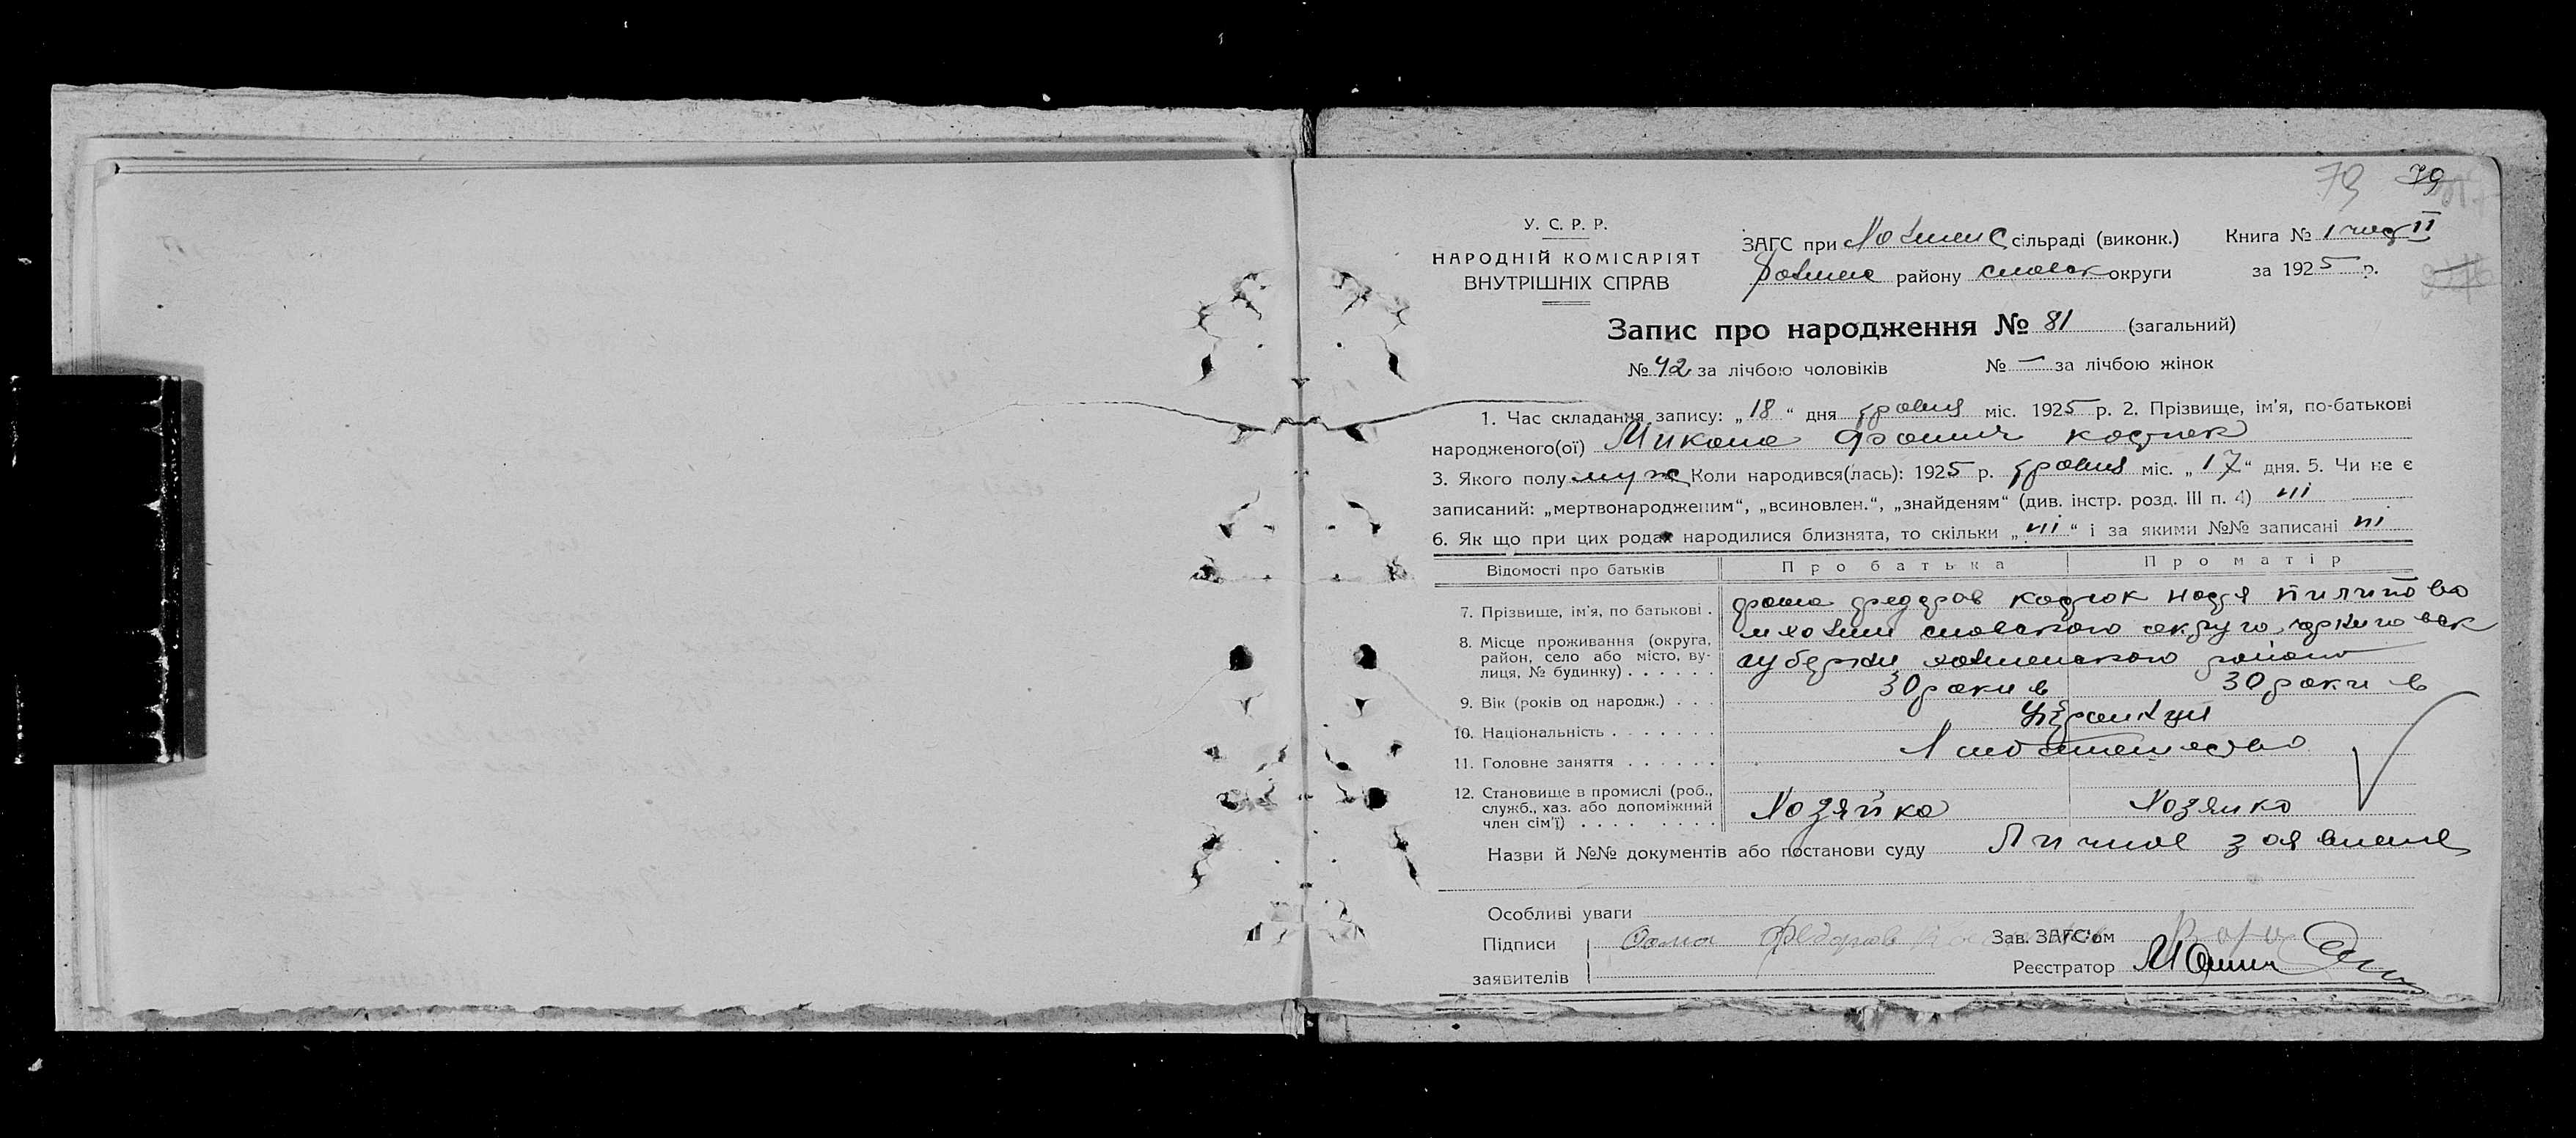 79 79
У. С. Р. Р.
НАРОДНІЙ КОМІСАРІЯТ
ВНУТРІШНІХ СПРАВ
ЗАГС при Хотминс сільраді (виконк.) Книга № 1 част II
району сновск округи за 1925 р.
Запис про народження № 81 (загальний)
№ 42 за лічбою чоловіків № — за лічбою жінок
1. Час складання запису: „18“ дня травня міс. 1925 р. 2. Прізвище, ім'я, по-батькові
народженого(ої) Микола Фомич костюк
3. Якого полу муж Коли народився(лась): 1925 р. травня міс. „17“ дня. 5. Чи не є
записаний: „мертвонародженим“, „всиновлен.“, „знайденям“ (див. інстр. розд. III п. 4) ні
6. Як що при цих родах народилися близнята, то скільки „ні“ і за якими №№ записані ні
Відомості про батьків Про батька Про матір
7. Прізвище, ім'я, по батькові . фома федоров костюк надя пилипова
8. Місце проживання (округа, район, село або місто, вулиця, № будинку) . . . . . . сновского округа
губерни района
9. Вік (років од народж.) . . . 30 роки в 30 роки в
10. Національність . . . . . . . Українци
11. Головне заняття . . . . . . Хлібопашество
12. Становище в промислі (роб., служб., хаз. або допоміжний член сім'ї) . . . . . . . . Хозяйка Хозяика
Назви й №№ документів або постанови суду Личное заявление
Особливі уваги
Підписи Фома Федоров Зав. ЗАГС'ом
заявителів Реєстратор